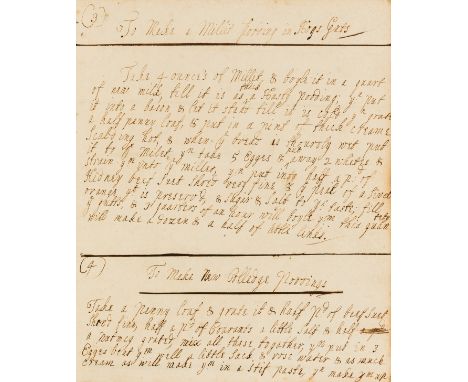 (3)
To Make a Millet Pooding in Hogs Guts
Take 4 ounces of Millet, & boyle it in a quart
of new milk till it is as thick as a Hasty pooding, yn put
it into a bason & let it stand till it is cold yn grate
a half penny loaf, & put in a pint of thick Creame
Scalding hot & when ye bread is throughly wet put
it to ye Millet, yn take 5 Egges & away 2 whites &
strein ym into ye millet, yn put into half a pd of
Kidney beef Suet Shred very fine & ye peel of a Sivel
orange yt is preserv'd, & Sugar & Salt to yr tast, fill
ye gutts, & 3 quarters of an hour will boyle ym this quan tity
will make a dozen & a half of little links.
(4)
To Make New Colledge Poodings
Take a penny loaf & grate it & half pd of beef Suet
Shred fine, half a pd of Courants a little Salt & half
a nutmeg grated mix all these together, yn put in 2
Egges beat ym well a little Sack & rose water & as much
Cream as will make ym in a stif paste, yn make ym up